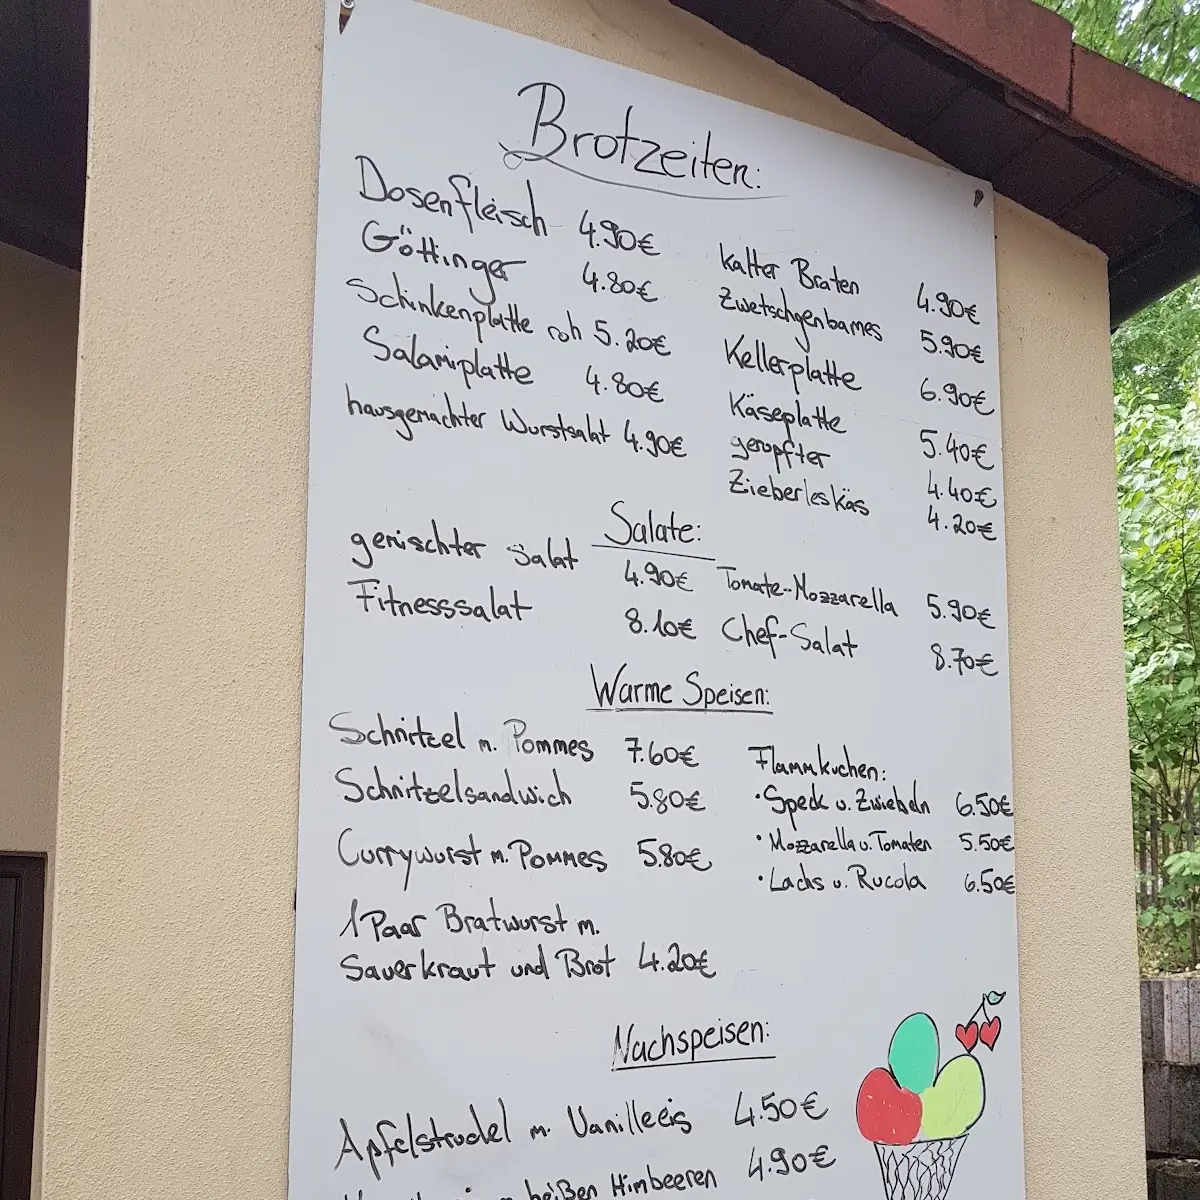 Brotzeiten:
Dosenfleisch 4.90€
Göttinger 4.80€
Schinkenplatte roh 5.20€
Salamiplatte 4.80€
hausgemachter Wurstsalat 4.90€
kalter Braten 4.90€
Zwetschgenbames 5.90€
Kellerplatte 6.90€
Käseplatte 5.40€
geropfter 4.40€
Zieberleskäs 4.20€
Salate:
gemischter Salat 4.90€
Fitnesssalat 8.10€
Tomate-Mozzarella 5.90€
Chef-Salat 8.70€
Warme Speisen:
Schnitzel m. Pommes 7.60€
Schnitzelsandwich 5.80€
Currywurst m. Pommes 5.80€
1 Paar Bratwurst m.
Sauerkraut und Brot 4.20€
Flammkuchen:
• Speck u. Zwiebeln 6.50€
• Mozzarella u. Tomaten 5.50€
• Lachs u. Rucola 6.50€
Nachspeisen:
Apfelstrudel m. Vanilleeis 4.50€
heißen Himbeeren 4.90€